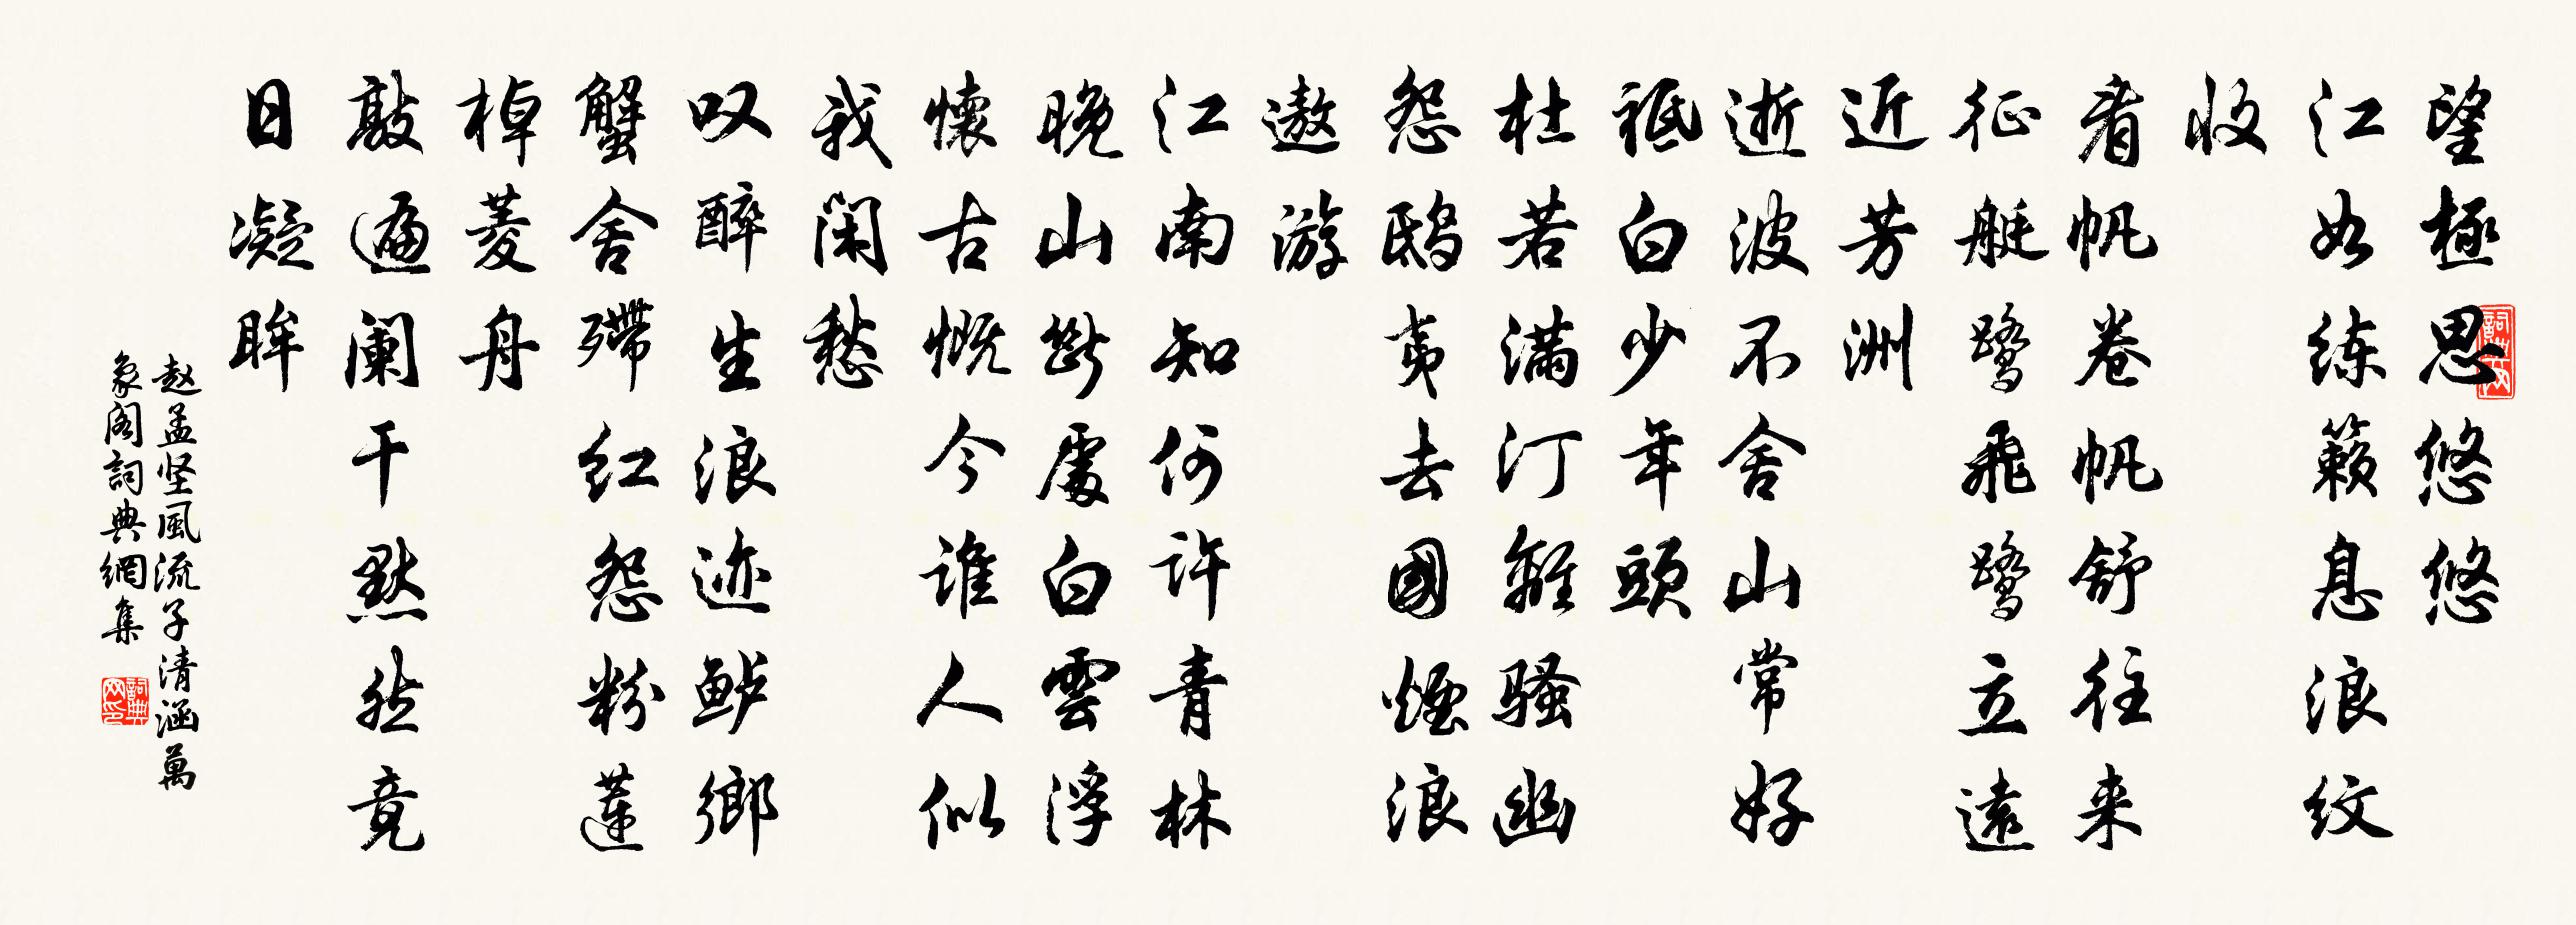 望極思悠悠
江如练籁息浪纹
收
看帆卷帆舒往来
征艇鹭飛鹭立遠
近芳洲
逝波不舍山常好
祗白少年頭
杜若满汀離骚幽
怨鸱夷去國煙浪
遨游
江南知何许青林
晚山斷處白雲浮
懷古慨今谁人似
我闲愁
叹醉生浪迹鲈鄉
蟹舍殢红怨粉蓮
棹菱舟
敲遍阑干默然竟
日凝眸
赵孟坚風流子清涵萬
象阁詞典網集